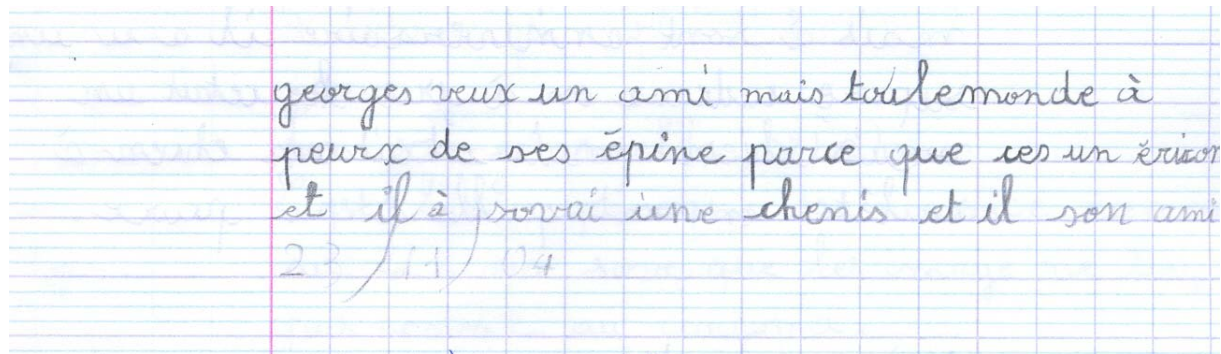 georges veux un ami mais toulemonde à
peurx de ses épine parce que ces un éricon
et il à sovai une chenis et il son ami
23/11/04